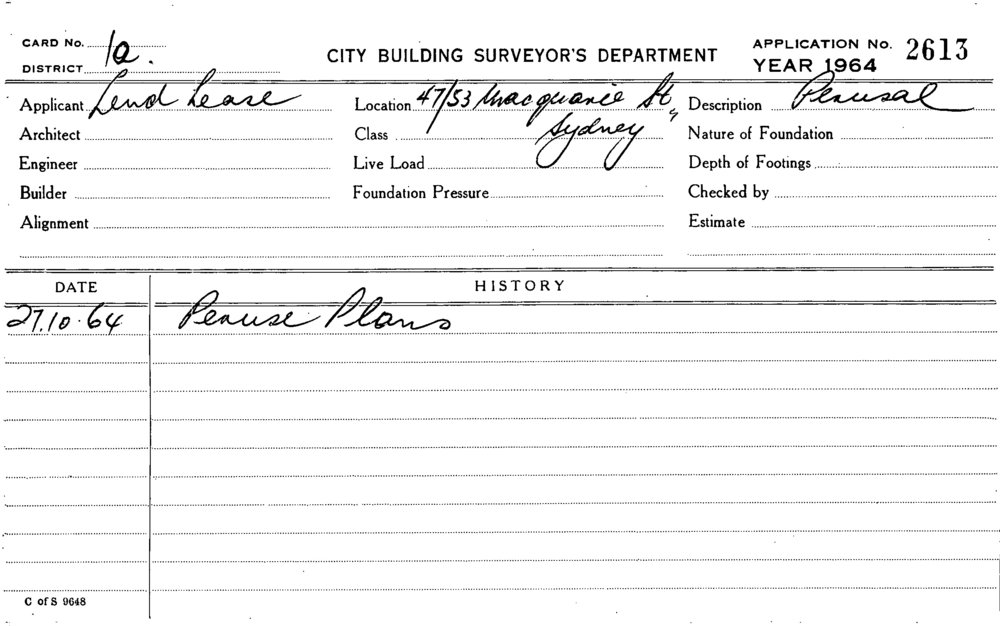 CARD No. 1a.
DISTRICT
CITY BUILDING SURVEYOR'S DEPARTMENT
APPLICATION No. 2613
YEAR 1964
Applicant Lend Lease
Location 47/53 Macquarie St,
Description Perusal
Architect
Class Sydney
Nature of Foundation
Engineer
Live Load
Depth of Footings
Builder
Foundation Pressure
Checked by
Alignment
Estimate
DATE HISTORY
27.10.64 Peruse Plans
C of S 9648